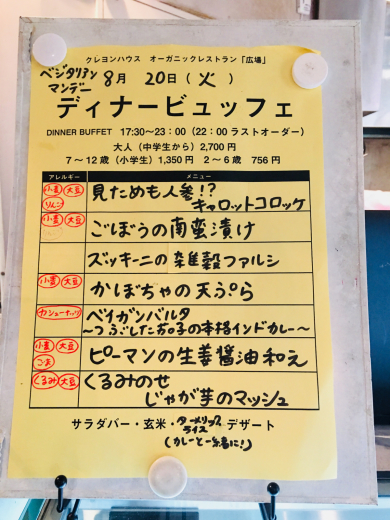 クレヨンハウス オーガニックレストラン「広場」
ベジタリアン
マンデー
8月 20日(火)
ディナービュッフェ
DINNER BUFFET 17:30〜23:00(22:00 ラストオーダー)
大人(中学生から)2,700円
7〜12歳(小学生)1,350円 2〜6歳 756円
アレルギー メニュー
小麦 大豆 りんご
見ためも人参!?
キャロットコロッケ
小麦 大豆 ごぼうの南蛮漬け
ズッキーニの雑穀ファルシ
小麦 大豆 かぼちゃの天ぷら
カシューナッツ ベイガンバルタ
〜つぶしたお茄子の本格インドカレー〜
小麦 大豆 ごま ピーマンの生姜醤油和え
くるみ 大豆 くるみのせ
じゃが芋のマッシュ
サラダバー・玄米・ターメリックライス デザート
(カレーと一緒に!)